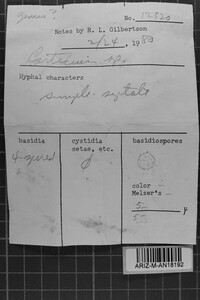 genus?
No. 12820
Notes by R. L. Gilbertson
2/24, 1980
Corticium sp.
Hyphal characters
simple-septate
basidia
cystidia
setae, etc.
basidiospores
4-spored
ø
color -
Melzer's -
µ
ARIZ-M-AN18192